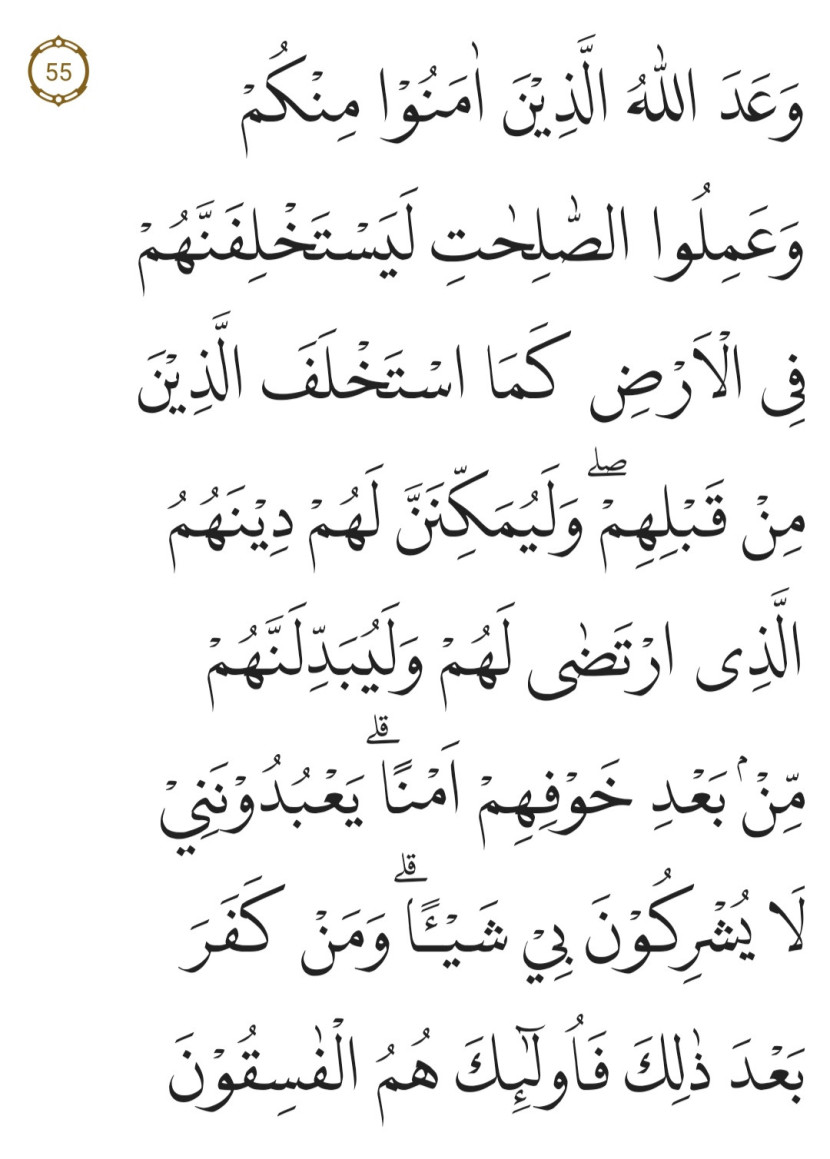 55
وَعَدَ اللّٰهُ الَّذِيْنَ اٰمَنُوْا مِنْكُمْ
وَعَمِلُوا الصّٰلِحٰتِ لَيَسْتَخْلِفَنَّهُمْ
فِى الْاَرْضِ كَمَا اسْتَخْلَفَ الَّذِيْنَ
مِنْ قَبْلِهِمْۖ وَلَيُمَكِّنَنَّ لَهُمْ دِيْنَهُمُ
الَّذِى ارْتَضٰى لَهُمْ وَلَيُبَدِّلَنَّهُمْ
مِّنْۢ بَعْدِ خَوْفِهِمْ اَمْنًاۗ يَعْبُدُوْنَنِيْ
لَا يُشْرِكُوْنَ بِيْ شَيْـًٔاۗ وَمَنْ كَفَرَ
بَعْدَ ذٰلِكَ فَاُولٰۤىِٕكَ هُمُ الْفٰسِقُوْنَ